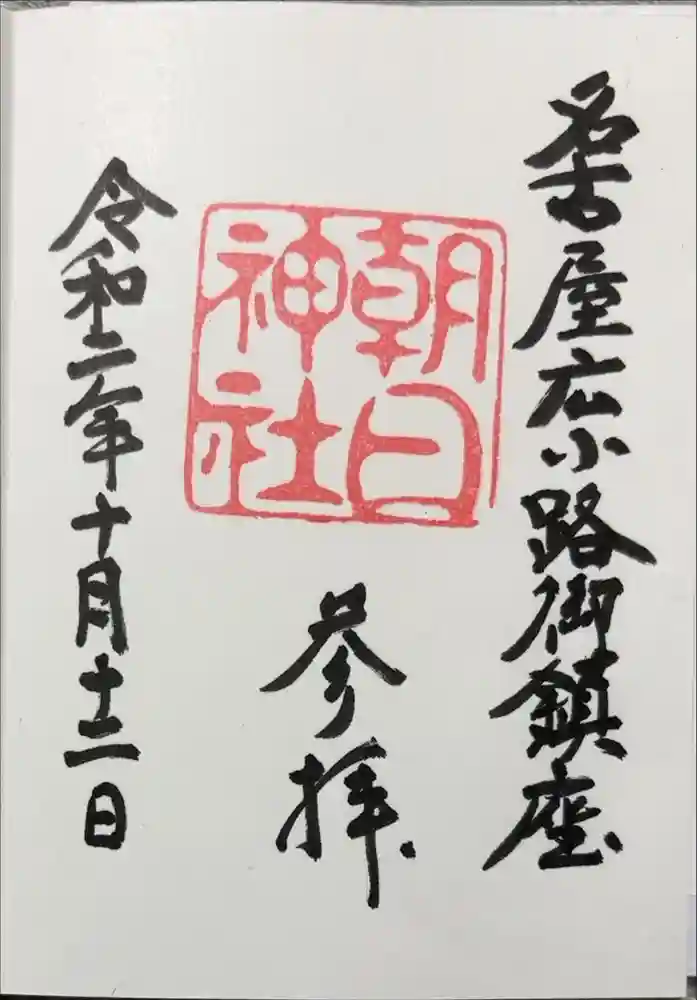 名古屋広小路御鎮座
朝日
神社
参拝
令和二年十月十二日